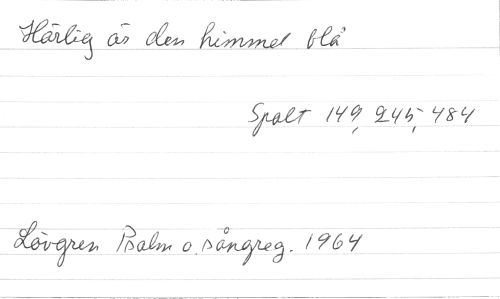 Härlig är den himmel blå
Spalt 149, 245, 484
Lövgren Psalm o. sångreg. 1964